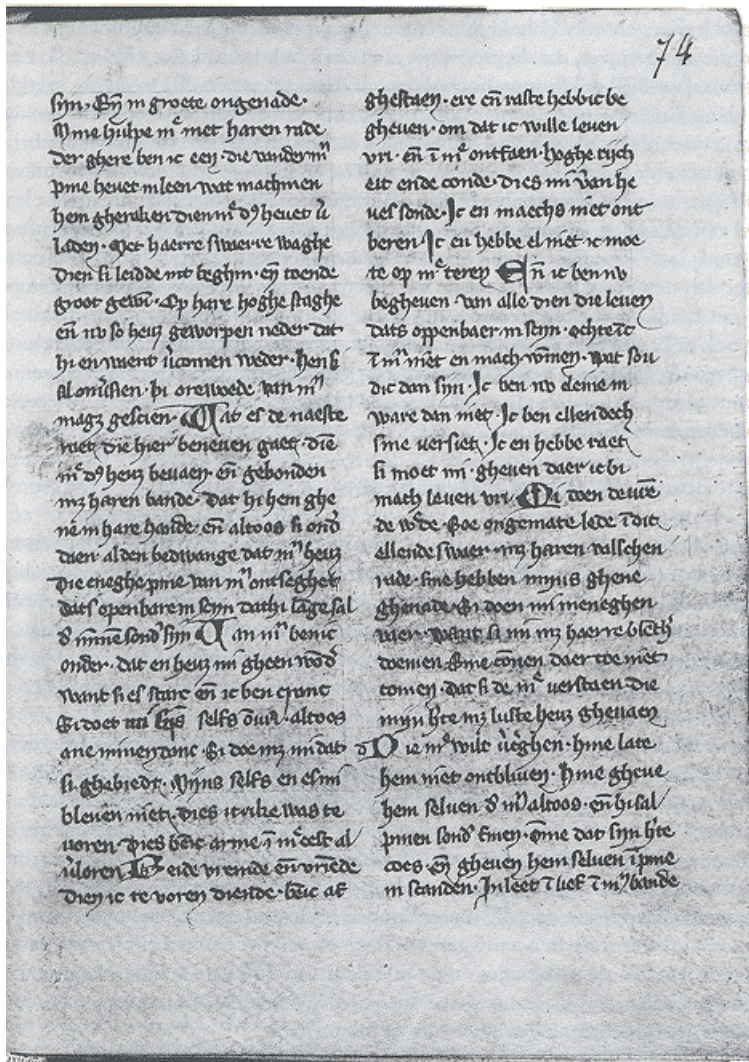 74
syn. En̄ in groete ongenade.
Mine hulpe mͤ met haren rade
der ghere ben ic een. die vander mͥ
pine hevet in leen. wat machmen
hem gheraken dien mͤ dꝰ hevet v̄
laden. Met haerre swaerre waghe
Dien si leidde int beghin. en̄ toende
groot gewī. Op hare hoghe staghe
en̄ nv so hevꝫ geworpen neder. dat
hi en waent v̄comen weder. hen si
al om̄ien. bi orewoede van mͥ
magꝫ gescien. Wat es de naeste
raet die hier beneven gaet. Dīe
mͤ dꝰ hevꝫ bevaen. en̄ gebonden
mꝫ haren bande. Dat hi hem ghe
ne in hare hande. en̄ altoos si ond̄
daen. al den bedwange dat mͥ hevꝫ
Die eneghe pine van mͥ ontseghet
dats openbare in scyn dat hi lāge sal
đ mīne sond̄ syn Van mͥ ben ic
onder. dat en hevꝫ mi gheen wōd̄
want si es starc en̄ ic ben cranc
Si doet mi selfs altoos
ane minen donc. Si doe mꝫ mi dat
si ghebiedt. Mijns selfs en es mi
bleven niet. dies ic rike was te
voren. Dies bē ic arme ī mͤ eest al
v̄loren. Beide vremde en̄ vriēde
Dien ic te voren diende. bē ic af
ghestaen. ere en̄ raste hebbic be
gheven. om dat ic wille leven
vri. en̄ ī mͤ ontfaen. hoghe rijch
eit ende conde. dies mi v̄an he
vet sonde. Ic en maechs niet ont
beren. Ic en hebbe el niet ic moe
te op mͤ teren En̄ ic ben nv
begheven van alle dien die leven
dats oppenbaer in scyn. ochte ic
ī mͥ niet en mach w̄inen. wat sou
dic dan syn. Ic ben nv cleine in
ware dan niet. Ic ben ellendech
sine versiet. Ic en hebbe raet
si moet mi gheven daer ic bi
mach leven vri. Mi doen de vrē
de w̄de. Soe ongemate lede ī dit
ellende swaer. mꝫ haren valschen
rade. sine hebben mijns ghene
ghenade. Si doen mi meneghen
vaer. Want si mi mꝫ haerre
doemen. Sine cōnen daer toe niet
comen. dat si de mͤ verstaen die
mijn h̄te mꝫ luste hevꝫ ghevaen
Die mͤ wilt v̄c̄ghen. hine late
hem niet ontbliven. Hine gheve
hem selven đ mͥ altoos. en̄ hi sal
pinen sond̄. Ōme dat syn h̄te
coes. en̄ gheven hem selven ī pine
in scanden. In leet ī lief ī mͥ bande